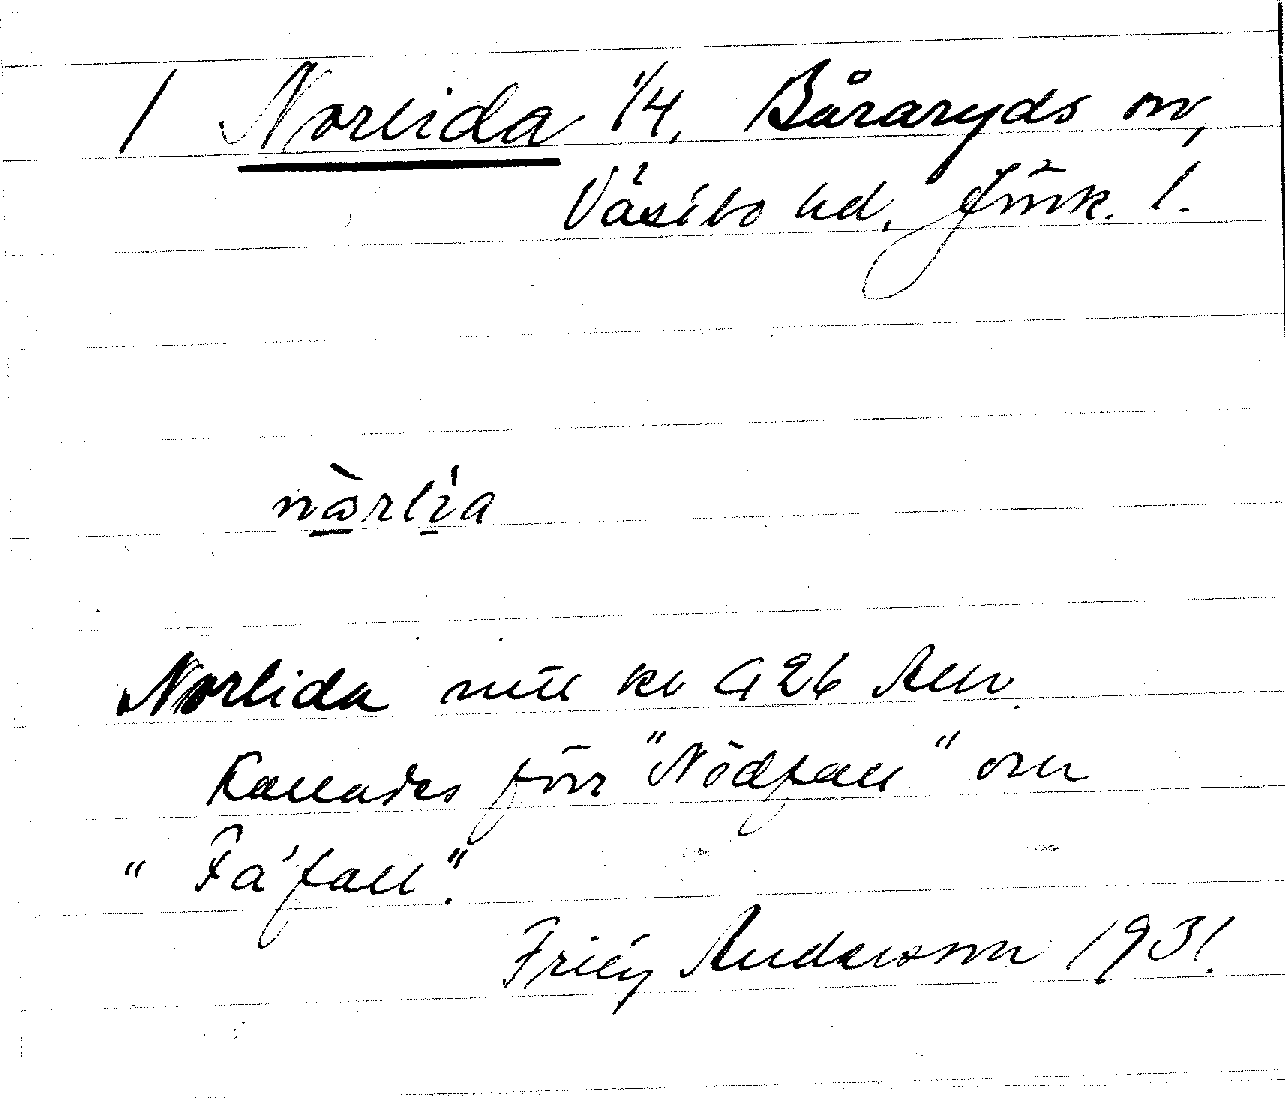 1 Norlida 1/4, Båraryds sn,
Västbo hd, Jönk. l.
nörlia
Norlida mtl kr 926 Allm.
Kallades förr "Nödfall" och
"Fåfall".
Andersson 1931.